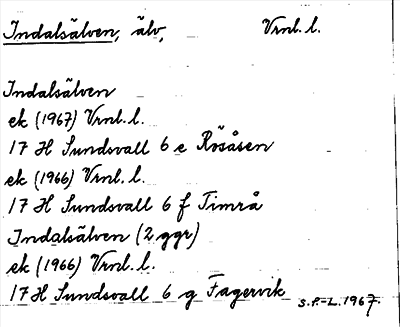 Indalsälven, älv, Vrnl. l.
Indalsälven
ek (1967) Vrnl. l.
17 H Sundsvall 6 e Rösåsen
ek (1966) Vrnl. l.
17 H Sundsvall 6 f Timrå
Indalsälven (2 ggr)
ek (1966) Vrnl. l.
17 H Sundsvall 6 g Fagervik
S.P.-L. 1967.